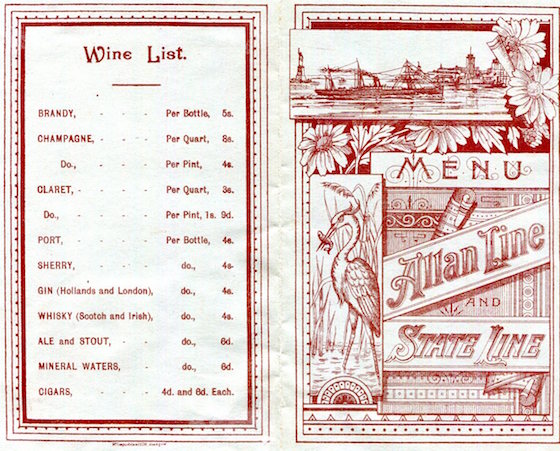 Wine List.
BRANDY, - - - - Per Bottle, 5s.
CHAMPAGNE, - - - - Per Quart, 8s.
Do., - - - - Per Pint, 4s.
CLARET, - - - - - Per Quart, 3s.
Do., - - - - Per Pint, 1s. 9d.
PORT, - - - - - Per Bottle, 4s.
SHERRY, - - - - do., 4s.
GIN (Hollands and London), do., 4s.
WHISKY (Scotch and Irish), do., 4s.
ALE and STOUT, - - - do., 6d.
MINERAL WATERS, - - do., 6d.
CIGARS, - - - - 4d. and 6d. Each.
MENU
Allan Line
AND
STATE LINE